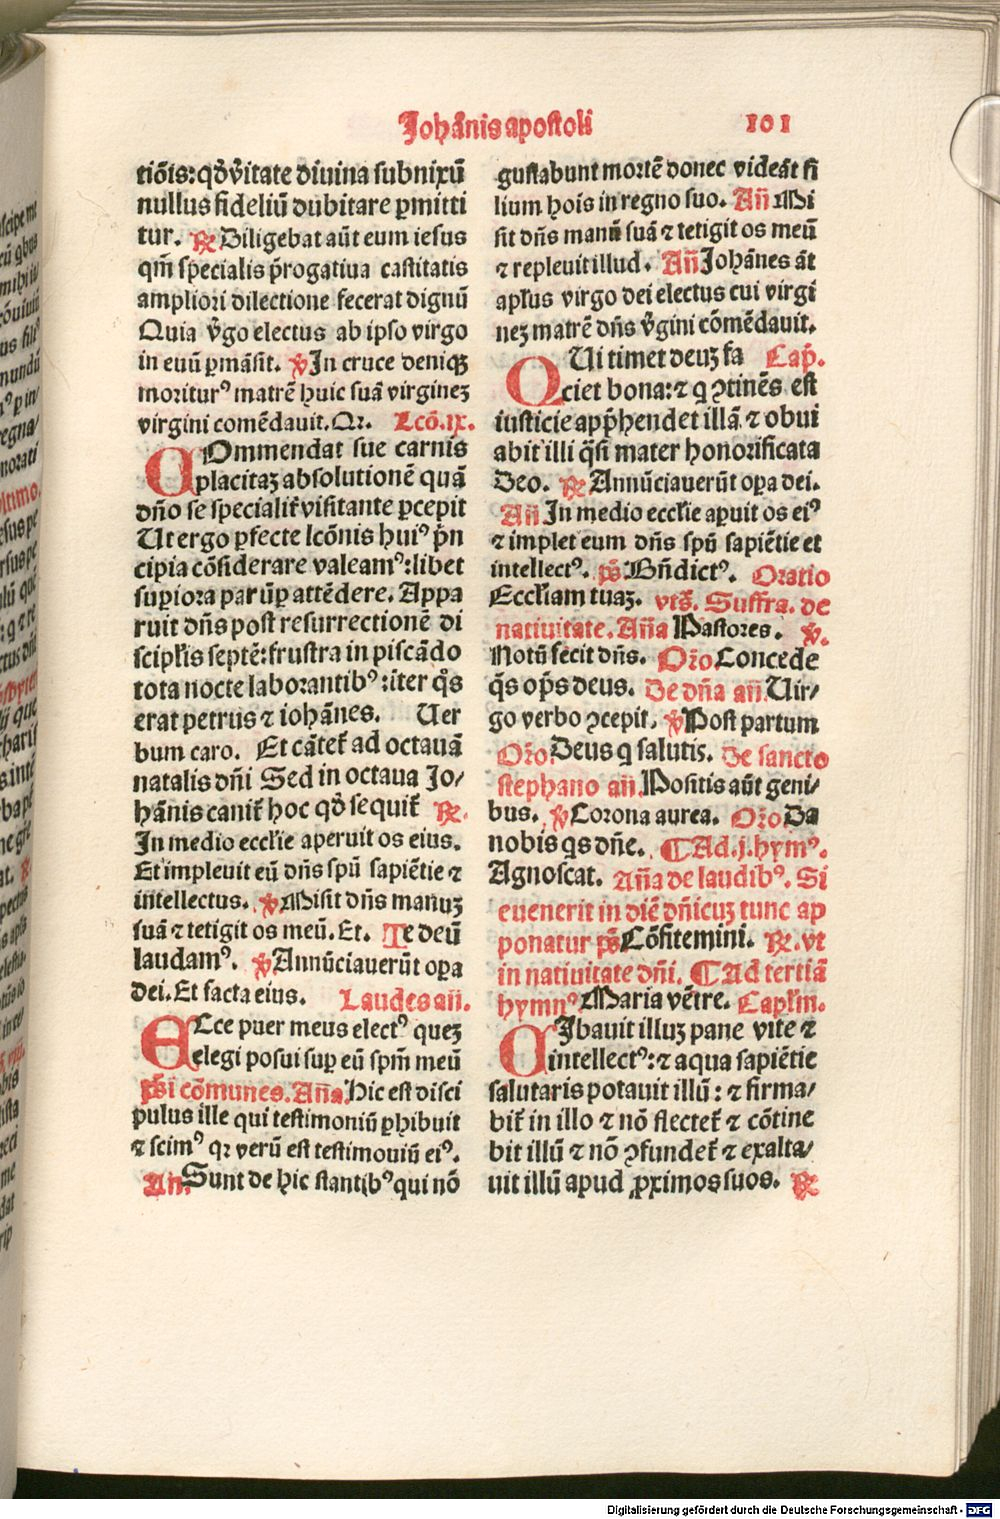 Johānis apostoli 101
tiōis: qđ v̄itate diuina subnixū
nullus fideliū dubitare ꝑmitti
tur. ℟ Diligebat aūt eum iesus
qm̄ specialis p̄rogatiua castitatis
ampliori dilectione fecerat dignū
Quia v̄go electus ab ipso virgo
in euū ꝑmāsit. ℣ In cruce deniqꝫ
moriturꝰ matrē huic suā virgineꝫ
virgini comēdauit. Qꝛ. Lcō. ix.
COmmendat sue carnis
placitaꝫ absolutionē quā
dn̄o se specialiꝉ visitante ꝑcepit
Ut ergo ꝑfecte lcōnis huiꝰ p̄n
cipia cōsiderare valeamꝰ: libet
suꝑiora parūꝑ attēdere. Appa
ruit dn̄s post resurrectionē di
scipłis septē: frustra in piscādo
tota nocte laborantibꝰ: iter q̊s
erat petrus ⁊ iohānes. Uer
bum caro. Et cātet᷑ ad octauā
natalis dn̄i Sed in octaua Jo/
hānis canit᷑ hoc qđ sequit᷑ ℟.
In medio eccłie aperuit os eius.
Et impleuit eū dn̄s spū sapiētie ⁊
intellectus. ℣ Misit dn̄s manuꝫ
suā ⁊ tetigit os meū. Et. Te deū
laudamꝰ. ℣ Annūciauerūt oꝑa
dei. Et facta eius. Laudes añ.
ECce puer meus electꝰ queꝫ
elegi posui suꝑ eū spm̄ meū
ps̄i cōmunes. Añā. Hic est disci
pulus ille qui testimoniū ꝑhibuit
⁊ scimꝰ qꝛ verū est testimoniū eiꝰ.
An̄. Sunt de hic stantibꝰ qui nō
gustabunt mortē donec videāt fi
lium hois in regno suo. Añ Mi
sit dn̄s manū suā ⁊ tetigit os meū
⁊ repleuit illud. Añ Johānes āt
apłus virgo dei electus cui virgi
neꝫ matrē dn̄s v̄gini cōmēdauit.
QUi timet deuꝫ fa Cap̄.
ciet bona: ⁊ q ꝯtinēs est
iusticie app̄hendet illā ⁊ obui
abit illi q̄si mater honorificata
Deo. ℟ Annūciauerūt oꝑa dei.
Añ In medio eccłie aꝑuit os eiꝰ
⁊ implet eum dn̄s spū sapiētie et
intellectꝰ. ps̄ Bn̄dictꝰ. Oratio
Eccłiam tuaꝫ. vts̄. Suffra. de
natiuitate. Añā Pastores. ℣.
Notū fecit dn̄s. Or̄o Concede
q̄s op̄s deus. De dn̄a añ. Uir/
go verbo ꝯcepit. ℣ Post partum
Or̄o. Deus q salutis. De sancto
stephano añ. Positis aūt geni/
bus. ℣ Corona aurea. Or̄o Da
nobis q̄s dn̄e. ¶ Ad .j. hymꝰ.
Agnoscat. Añā de laudibꝰ. Si
euenerit in diē dn̄icuꝫ tunc ap
ponatur ps̄ Cōfitemini. ℟. vt
in natiuitate dn̄i. ¶ Ad tertiā
hymnꝰ Maria vētre. Capłm.
CIbauit illuꝫ pane vite ⁊
intellectꝰ: ⁊ aqua sapiētie
salutaris potauit illū: ⁊ firma/
bit᷑ in illo ⁊ nō flectet᷑ ⁊ cōtine
bit illū ⁊ nō ꝯfundet᷑ ⁊ exalta/
uit illū apud ꝓximos suos. ℟
Digitalisierung gefördert durch die Deutsche Forschungsgemeinschaft - DFG